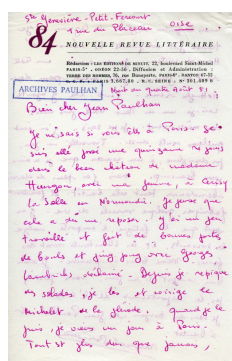 Ste Geneviève-Petit-Fercourt
4 rue du Plateau OISE
84
NOUVELLE REVUE LITTÉRAIRE
Rédaction : LES ÉDITIONS DE MINUIT, 22, boulevard Saint-Michel
PARIS-6e - ODÉON 22-36 . Diffusion et Administration :
TERRE DES HOMMES, 76, rue Bonaparte, PARIS-6e - DANTON 67-52
ARCHIVES PAULHAN
Nuit du quatre Août 51
Bien cher Jean Paulhan
Je ne sais si vous êtes à Paris. Je
suis allé passer une quinzaine de jours
dans le beau château de madame
Heurgon, avec ma femme, à Cerisy
la Salle en Normandie. Je pense que
cela a dû me reposer. J'ai un peu
travaillé et fait de bonnes parties
de boules et ping pong avec Georges
Lambrichs, notamment. Depuis je repique
des salades, je lis et corrige le
Michelet de la pléiade. Quand je
puis, je viens un jour à Paris.
Tout est plus dur que jamais,